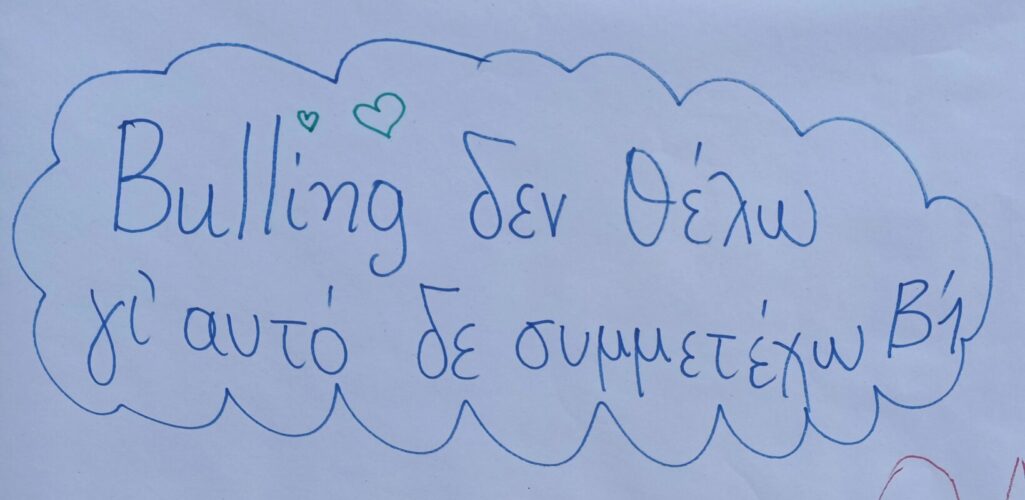 Bulling δεν θέλω
γι' αυτό δε συμμετέχω Β'1